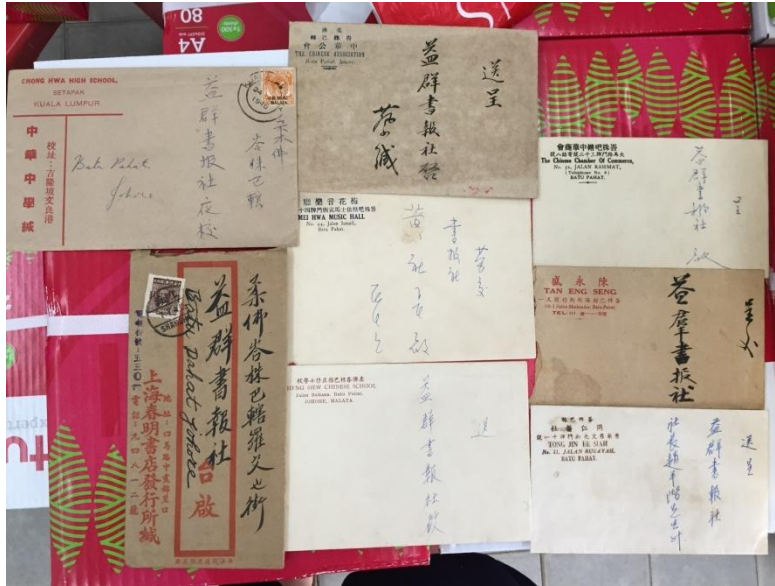 A4
80
CHONG HWA HIGH SCHOOL,
SETAPAK
KUALA LUMPUR
中華中學緘
校址：吉隆坡文良港
Batu Pahat
Johore
柔佛峇株巴轄
益群書報社夜校
會公華中
THE CHINESE ASSOCIATION
Batu Pahat Johore.
送呈
益群書報社啓
會商華中轄吧株峇
The Chinese Chamber Of Commerce,
No. 32, JALAN RAHMAT,
(Telephone No. 8)
BATU PAHAT.
呈
益群書報社 啟
MEI HWA MUSIC HALL
No. 44, Jalan Ismail,
Batu Pahat.
書報社
黃社長啟
盛永陳
TAN ENG SENG
TEL.
益群書報社
SHANGHAI
柔佛峇株巴轄羅美也街
益群書報社
台啟
Batu Pahat Johore
地址：四馬路中
上海春明書店發行所緘
電話：九四八一二號
CHINESE SCHOOL,
Batu Pahat,
JOHORE, MALAYA.
送
益群書報社啟
社善仁同
TONG JIN EE SIAH
No. 11, JALAN RUGAYAH,
BATU PAHAT.
送呈
益群書報社